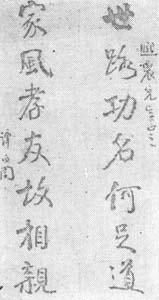 世路功名何足道
家風孝友故相親